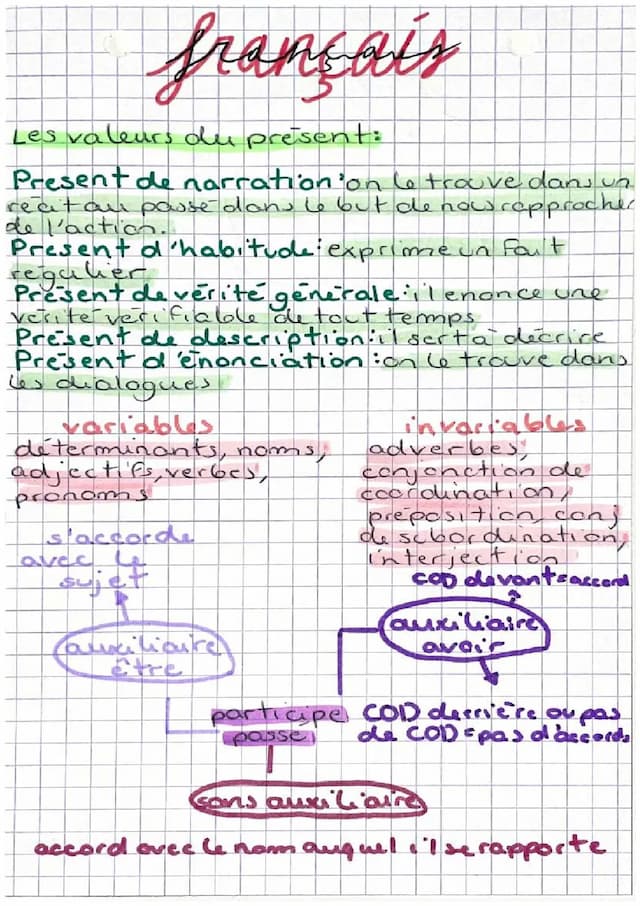 français
Les valeurs du présent:
Présent de narration: on le trouve dans un
récit au passé dans le but de nous rapprocher
de l'action.
Présent d'habitude: exprime un fait
régulier
Présent de vérité générale: il énonce une
vérité vérifiable de tout temmps
Présent de description: il sert à décrire
Présent d'énonciation: on le trouve dans
les dialogues
variables
déterminants, noms,
adjectifs, verbes,
pronoms
invariables
adverbes,
conjonction de
coordination,
préposition, conj
de subordination,
interjection
s'accorde
avec le
sujet
auxiliaire
être
COD devant=accord
auxiliaire
avoir
COD derrière ou pas
de COD=pas d'accords
participe
passé
sans auxiliaire
accord avec le nom auquel il se rapporte